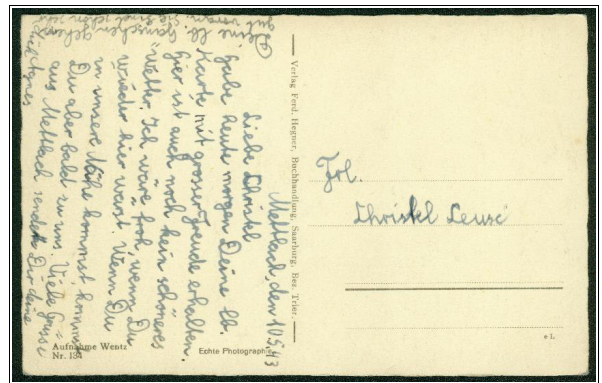 Mettlach, den 10.5.43
Liebe Christel
habe heute morgen Deine lb.
Karte mit grosser Freude erhalten.
hier ist auch noch kein schöneres
Wetter. Ich wäre froh, wenn Du
wieder hier warst. Wenn Du
in unsere Nähe kommst, komme
Du aber bald zu uns. Viele Grüsse
aus Mettlach sendet Dir deine
Agnes
Deine lb. Gänschen gehen
gut voran. Sie sind schon
Verlag Ferd. Hegner, Buchhandlung, Saarburg, Bez. Trier.
Frl.
Christel Leuse
Aufnahme Wentz
Nr. 134
Echte Photographie
e L.